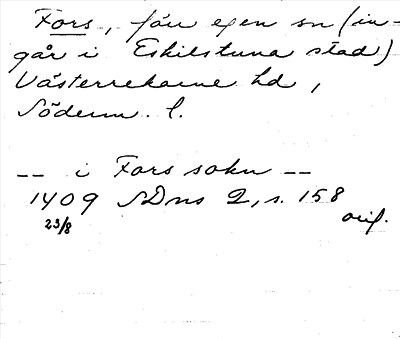 Fors, förr egen sn (in-
går i Eskilstuna stad)
Västerrekarne hd,
Söderm. l.
-- i Fors sokn --
1409 SDns 2, s. 158
23/8 orig.